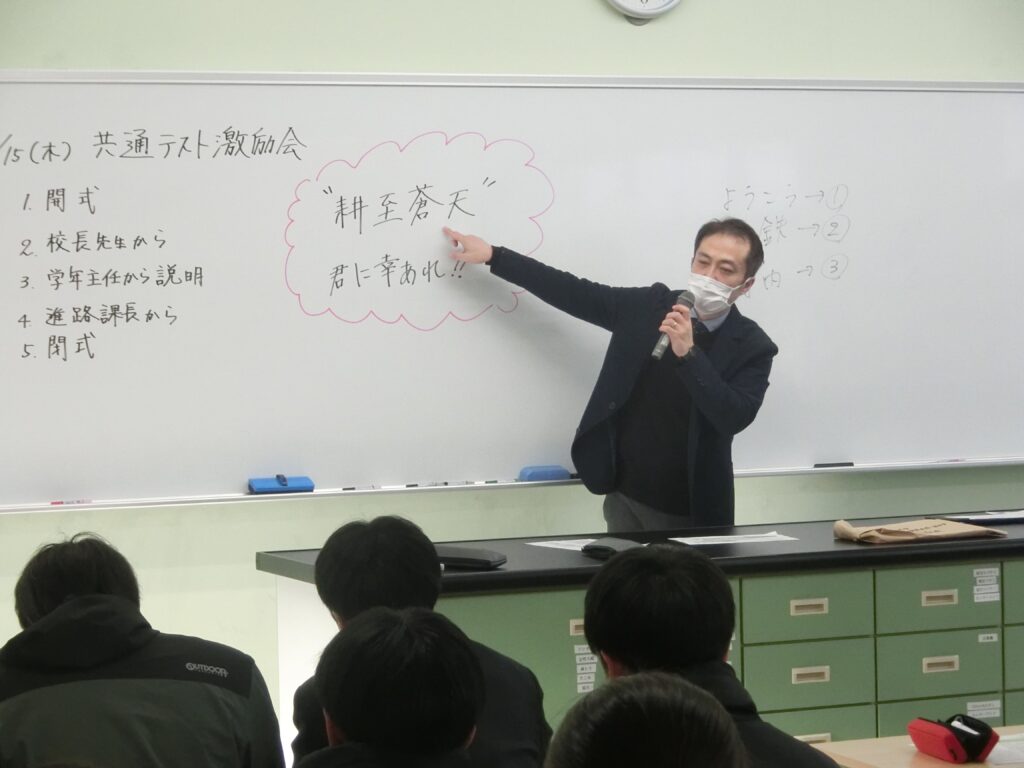 /15(木) 共通テスト激励会
1. 開式
2. 校長先生から
3. 学年主任から説明
4 進路課長から
5. 閉式
"耕至蒼天"
君に幸あれ!!
ようこう→①
鋭→②
内→③
OUTDOOR